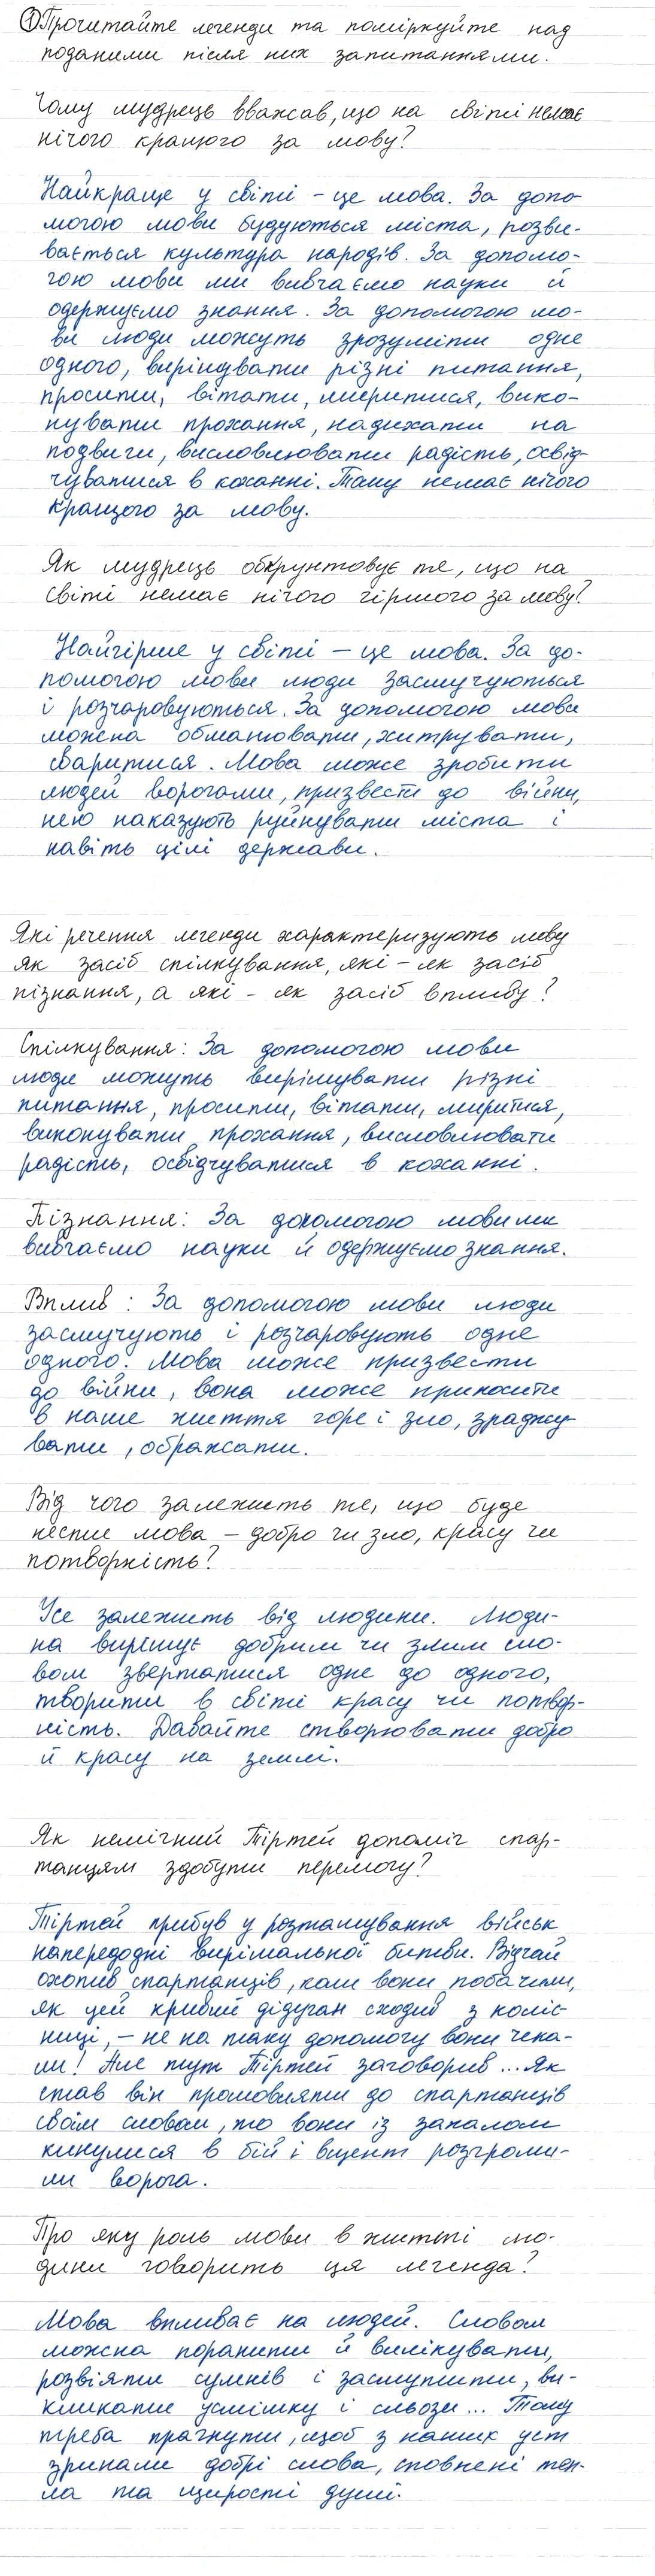 ① Прочитайте легенди та поміркуйте над
поданими після них запитаннями.
Чому мудрець вважав, що на світі немає
нічого кращого за мову?
Найкраще у світі – це мова. За допо-
могою мови будуються міста, розви-
вається культура народів. За допомо-
гою мови ми вивчаємо науки й
одержуємо знання. За допомогою мо-
ви люди можуть зрозуміти одне
одного, вирішувати різні питання,
просити, вітати, миритися, вико-
нувати прохання, надихати на
подвиги, висловлювати радість, освід-
чуватися в коханні. Тому немає нічого
кращого за мову.
Як мудрець обґрунтовує те, що на
світі немає нічого гіршого за мову?
Найгірше у світі – це мова. За до-
помогою мови люди засмучуються
і розчаровуються. За допомогою мови
можна обманювати, хитрувати,
сваритися. Мова може зробити
людей ворогами, призвести до війни,
нею наказують руйнувати міста і
навіть цілі держави.
Які речення легенди характеризують мову
як засіб спілкування, які – як засіб
пізнання, а які – як засіб впливу?
Спілкування: За допомогою мови
люди можуть вирішувати різні
питання, просити, вітати, миритися,
виконувати прохання, висловлювати
радість, освідчуватися в коханні.
Пізнання: За допомогою мови ми
вивчаємо науки й одержуємо знання.
Вплив: За допомогою мови люди
засмучують і розчаровують одне
одного. Мова може призвести
до війни, вона може приносити
в наше життя горе і зло, зраджу-
вати, ображати.
Від чого залежить те, що буде
нести мова – добро чи зло, красу чи
потворність?
Усе залежить від людини. Люди-
на вирішує добрим чи злим сло-
вом звертатися одне до одного,
творити в світі красу чи потвор-
ність. Давайте створювати добро
й красу на землі.
Як немічний Тіртей допоміг спар-
танцям здобути перемогу?
Тіртей прибув у розташування військ
напередодні вирішальної битви. Відчай
охопив спартанців, коли вони побачили,
як цей кривий дідуган сходив з коліс-
ниці, – не на таку допомогу вони чека-
ли! Але тут Тіртей заговорив... Як
став він промовляти до спартанців
своїм словом, то вони із запалом
кинулися в бій і вщент розгроми-
ли ворога.
Про яку роль мови в житті лю-
дини говорить ця легенда?
Мова впливає на людей. Словом
можна поранити й вилікувати,
розвіяти сумнів і засмутити, ви-
кликати усмішку і сльози... Тому
треба прагнути, щоб з наших уст
зринали добрі слова, сповнені теп-
ла та щирості душі.